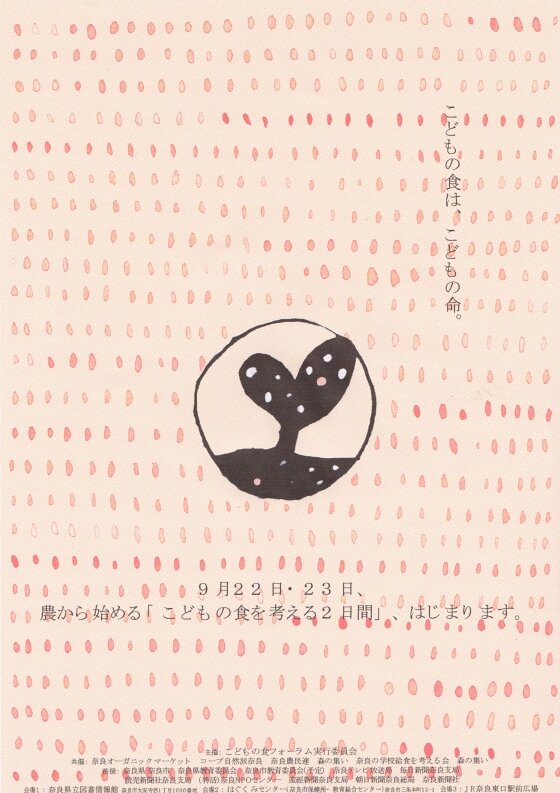 こどもの食は、こどもの命。
９月２２日・２３日、
農から始める「こどもの食を考える２日間」、はじまります。
主催：こどもの食フォーラム実行委員会
共催：奈良オーガニックマーケット　コープ自然派奈良　奈良農民連　森の集い　奈良の学校給食を考える会　森の集い
後援：奈良県奈良市　奈良県教育委員会　奈良市教育委員会(予定)　奈良テレビ放送局　毎日新聞奈良支局
読売新聞社奈良支局　(特活)奈良NPOセンター　産経新聞奈良支局　朝日新聞奈良総局　奈良新聞社
会場1：奈良県立図書情報館　奈良市大安寺西1丁目1000番地　会場2：はぐくみセンター(奈良市保健所・教育総合センター)奈良市三条本町13-1　会場3：JR奈良東口駅前広場